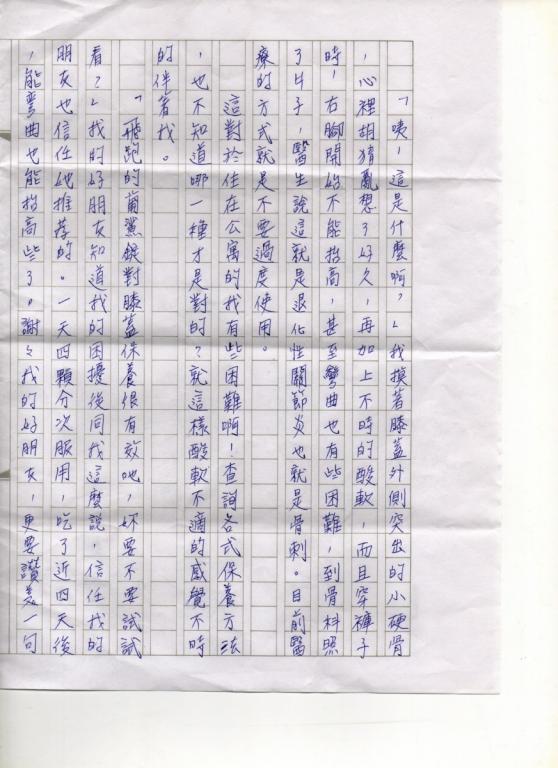 「咦，這是什麼啊？」我摸著膝蓋外側突出的小硬骨
，心裡胡猜亂想了好久，再加上不時的酸軟，而且穿褲子
時，右腳開始不能抬高，甚至彎曲也有些困難，到骨科照
了片子，醫生說這就是退化性關節炎也就是骨刺。目前醫
療的方式就是不要過度使用。
這對於住在公寓的我有些困難啊！查詢各式保養方法
，也不知道哪一種才是對的？就這樣酸軟不適的感覺不時
的伴著我。
「飛跑的葡鯊錠對膝蓋保養很有效吔，妳要不要試試
看？」我的好朋友知道我的困擾後向我這麼說，信任我的
朋友也信任她推荐的。一天四顆分次服用，吃了近四天後
，能彎曲也能抬高些了。謝々我的好朋友，更要讚美一句